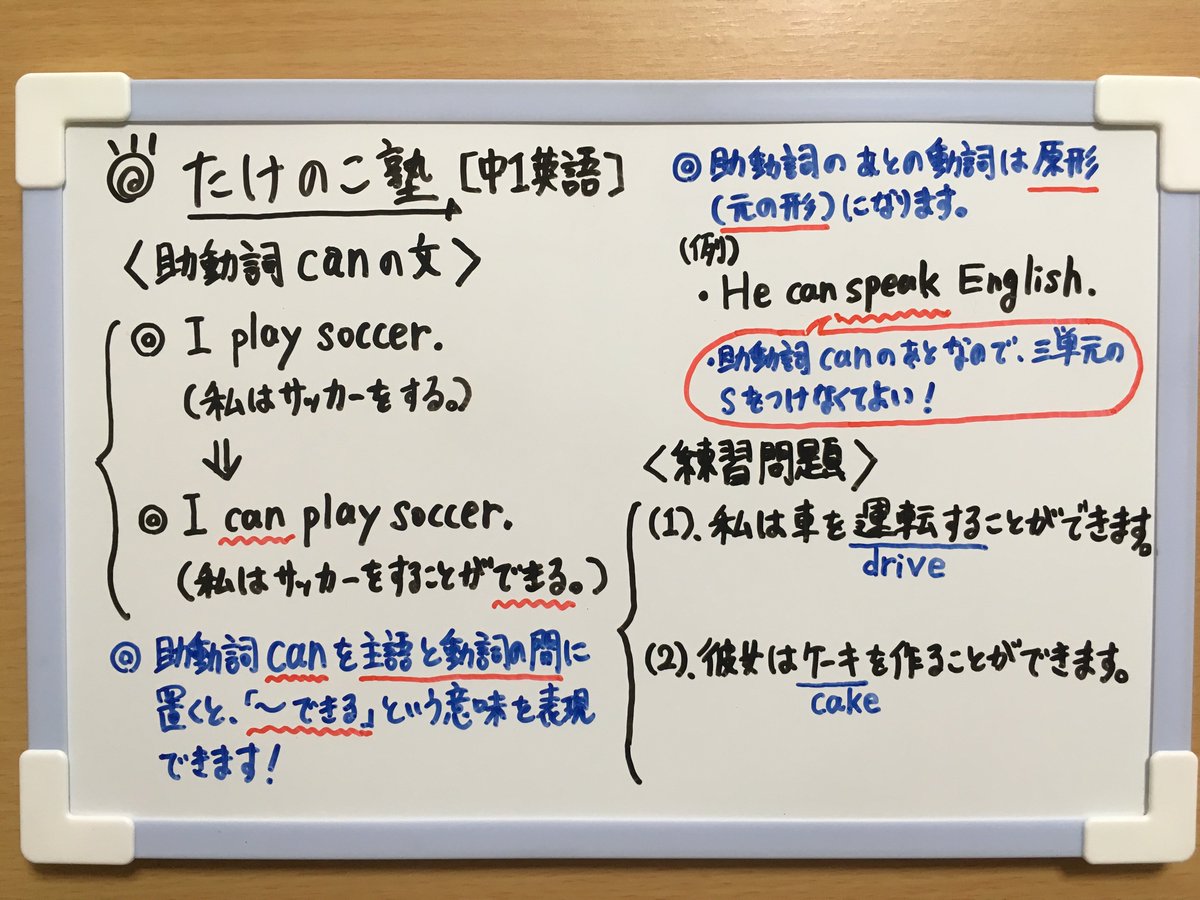 たけのこ塾 [中1英語]
〈助動詞 canの文〉
◎ I play soccer.
(私はサッカーをする。)
⇓
◎ I can play soccer.
(私はサッカーをすることができる。)
◎ 助動詞 canを主語と動詞の間に
置くと、「～できる」という意味を表現
できます!
◎ 助動詞のあとの動詞は原形
(元の形)になります。
(例)
・He can speak English.
・助動詞 canのあとなので、三単元の
Sをつけなくてよい!
〈練習問題〉
(1). 私は車を運転することができます。
drive
(2). 彼女はケーキを作ることができます。
cake